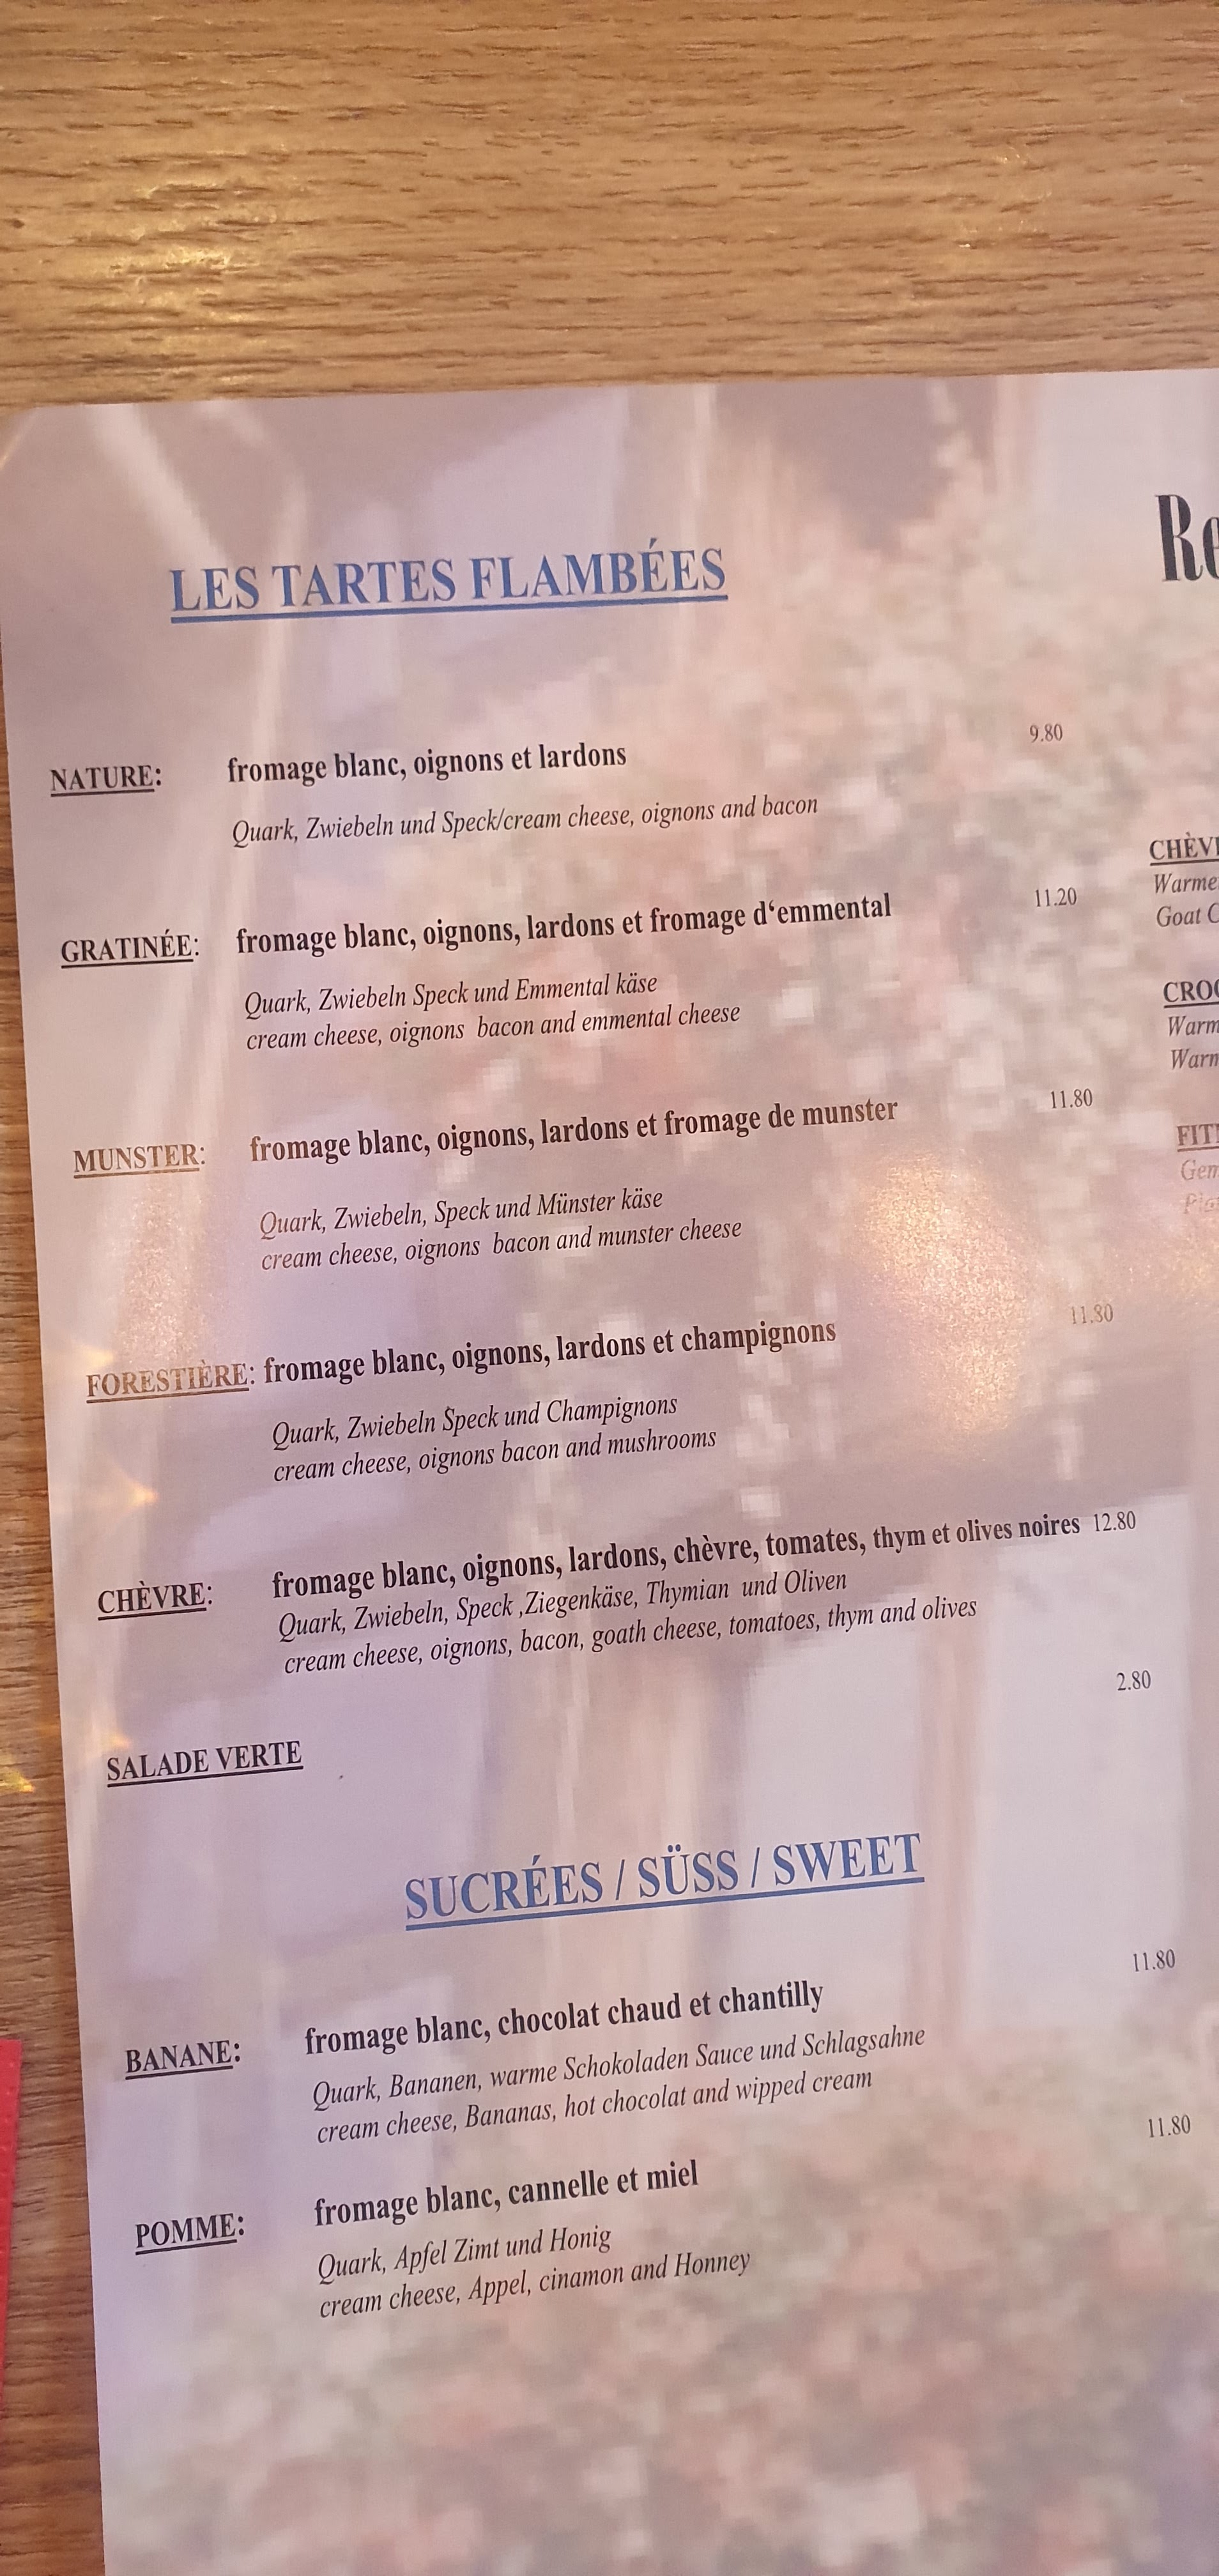 LES TARTES FLAMBÉES
NATURE: fromage blanc, oignons et lardons 9.80
Quark, Zwiebeln und Speck/cream cheese, oignons and bacon
GRATINÉE: fromage blanc, oignons, lardons et fromage d‘emmental 11.20
Quark, Zwiebeln Speck und Emmental käse
cream cheese, oignons bacon and emmental cheese
MUNSTER: fromage blanc, oignons, lardons et fromage de munster 11.80
Quark, Zwiebeln, Speck und Münster käse
cream cheese, oignons bacon and munster cheese
FORESTIÈRE: fromage blanc, oignons, lardons et champignons 11.80
Quark, Zwiebeln Speck und Champignons
cream cheese, oignons bacon and mushrooms
CHÈVRE: fromage blanc, oignons, lardons, chèvre, tomates, thym et olives noires 12.80
Quark, Zwiebeln, Speck ,Ziegenkäse, Thymian und Oliven
cream cheese, oignons, bacon, goath cheese, tomatoes, thym and olives
SALADE VERTE 2.80
SUCRÉES / SÜSS / SWEET
BANANE: fromage blanc, chocolat chaud et chantilly 11.80
Quark, Bananen, warme Schokoladen Sauce und Schlagsahne
cream cheese, Bananas, hot chocolat and wipped cream
POMME: fromage blanc, cannelle et miel 11.80
Quark, Apfel Zimt und Honig
cream cheese, Appel, cinamon and Honney
Re
CHÈV
Warme
Goat C
CRO
Warm
Warm
FIT
Gem